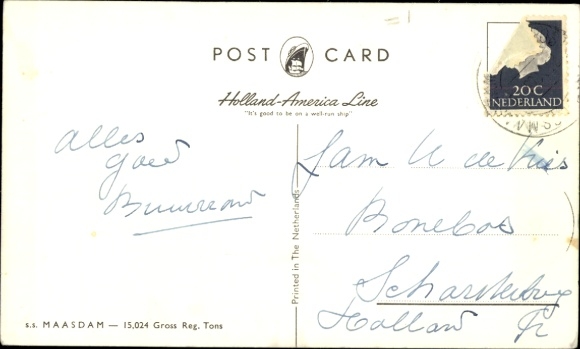 POST CARD
Holland-America Line
"It's good to be on a well-run ship"
20 C
NEDERLAND
Alles
goed
Buurvrouw
Fam de Vries
Scharsterbrug
Holland Fr
Printed in The Netherlands
s.s. MAASDAM — 15,024 Gross Reg. Tons